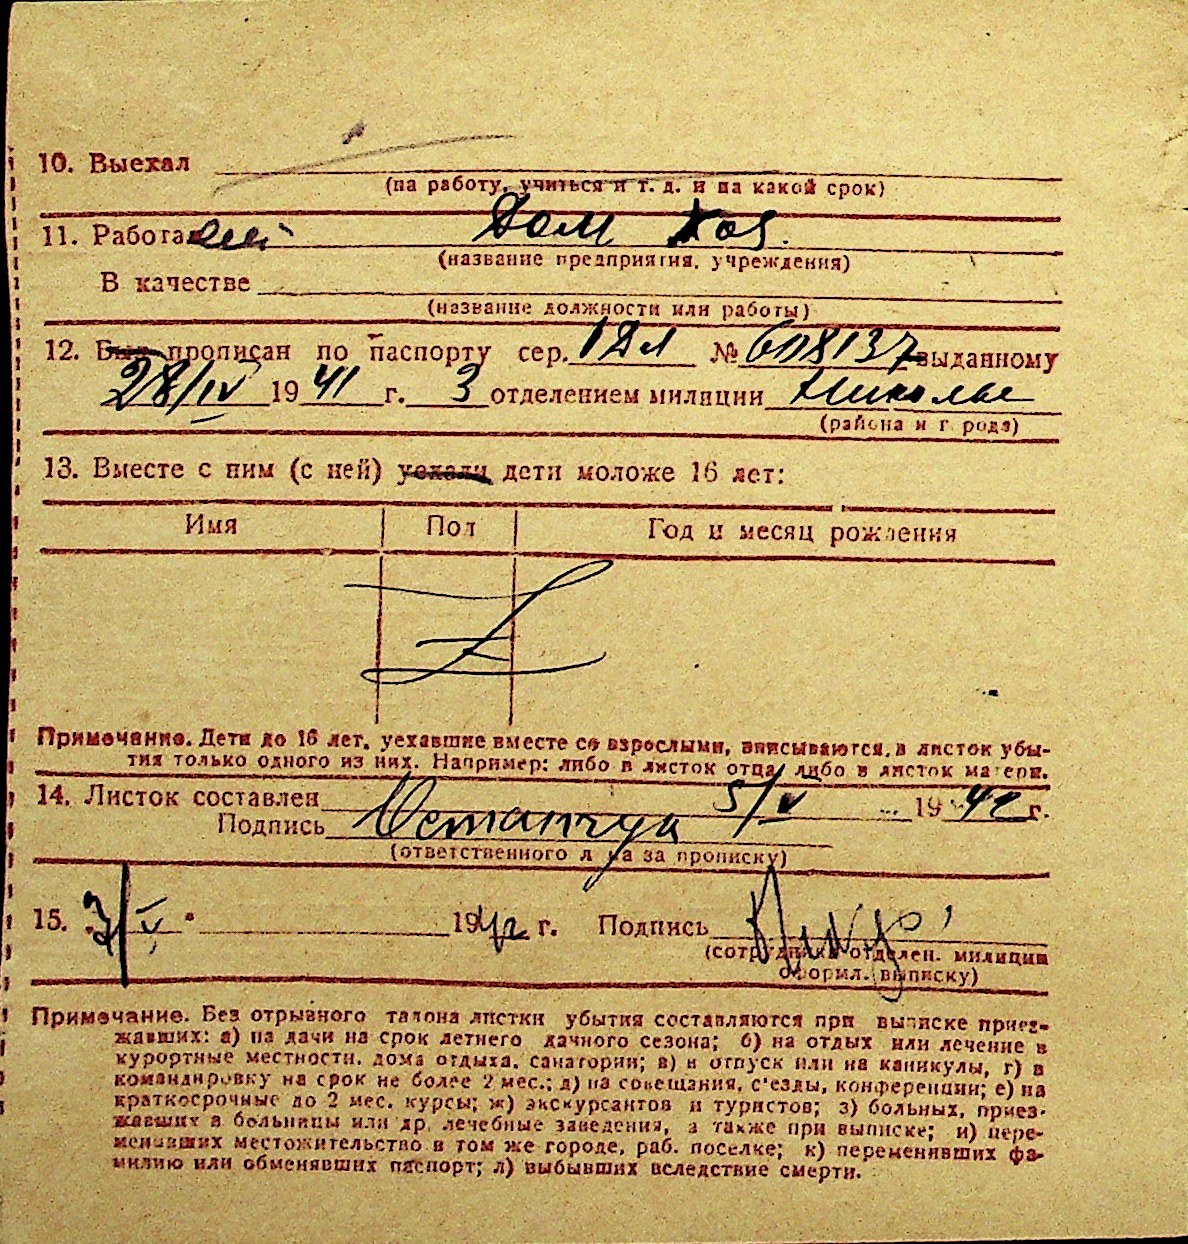 10. Выехал
(на работу, учиться и т. д. и на какой срок)
11. Работа Дом Хоз.
(название предприятия, учреждения)
В качестве
(название должности или работы)
12. Был прописан по паспорту сер. № 618137 выданному
28/IV 1941 г. 3 отделением милиции
(района и города)
13. Вместе с ним (с ней) уехали дети моложе 16 лет:
Имя Пол Год и месяц рождения
Примечание. Дети до 16 лет, уехавшие вместе со взрослыми, вписываются в листок убы-
тия только одного из них. Например: либо в листок отца либо в листок матери.
14. Листок составлен 5/V 1942 г.
Подпись
(ответственного л ца за прописку)
15. 7/V 1942 г. Подпись
(сотрудника отделен. милиции
оформл. выписку)
Примечание. Без отрывного талона листки убытия составляются при выписке приез-
жавших: а) на дачи на срок летнего дачного сезона; б) на отдых или лечение в
курортные местности, дома отдыха, санатории; в) в отпуск или на каникулы, г) в
командировку на срок не более 2 мес.; д) на совещания, с'езды, конференции; е) на
краткосрочные до 2 мес. курсы; ж) экскурсантов и туристов; з) больных, приез-
жавших в больницы или др. лечебные заведения, а также при выписке; и) пере-
менивших местожительство в том же городе, раб. поселке; к) переменивших фа-
милию или обменявших паспорт; л) выбывших вследствие смерти.